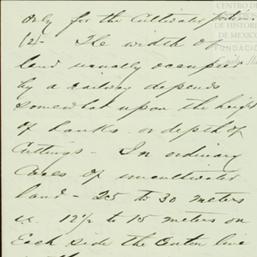 only for the Cultivated portion.
12- The width of
land usually occupied
by a railway depends
somewhat upon the height
of banks or depth of
Cuttings - In ordinary
Cases of uncultivated
land - 25 to 30 meters
i.e. 12½ to 15 meters on
Each side the Center line
CENTRO DE
DE HISTORIA
DE MEXICO
FUNDACIÓN